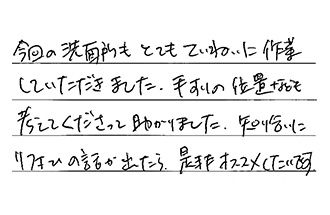 今回の洗面所も とても ていねいに 作業
していただきました. 手すりの 位置なども
考えてくださって 助かりました. 知り合いに
リフォームの話が出たら. 是非 オススメしたい